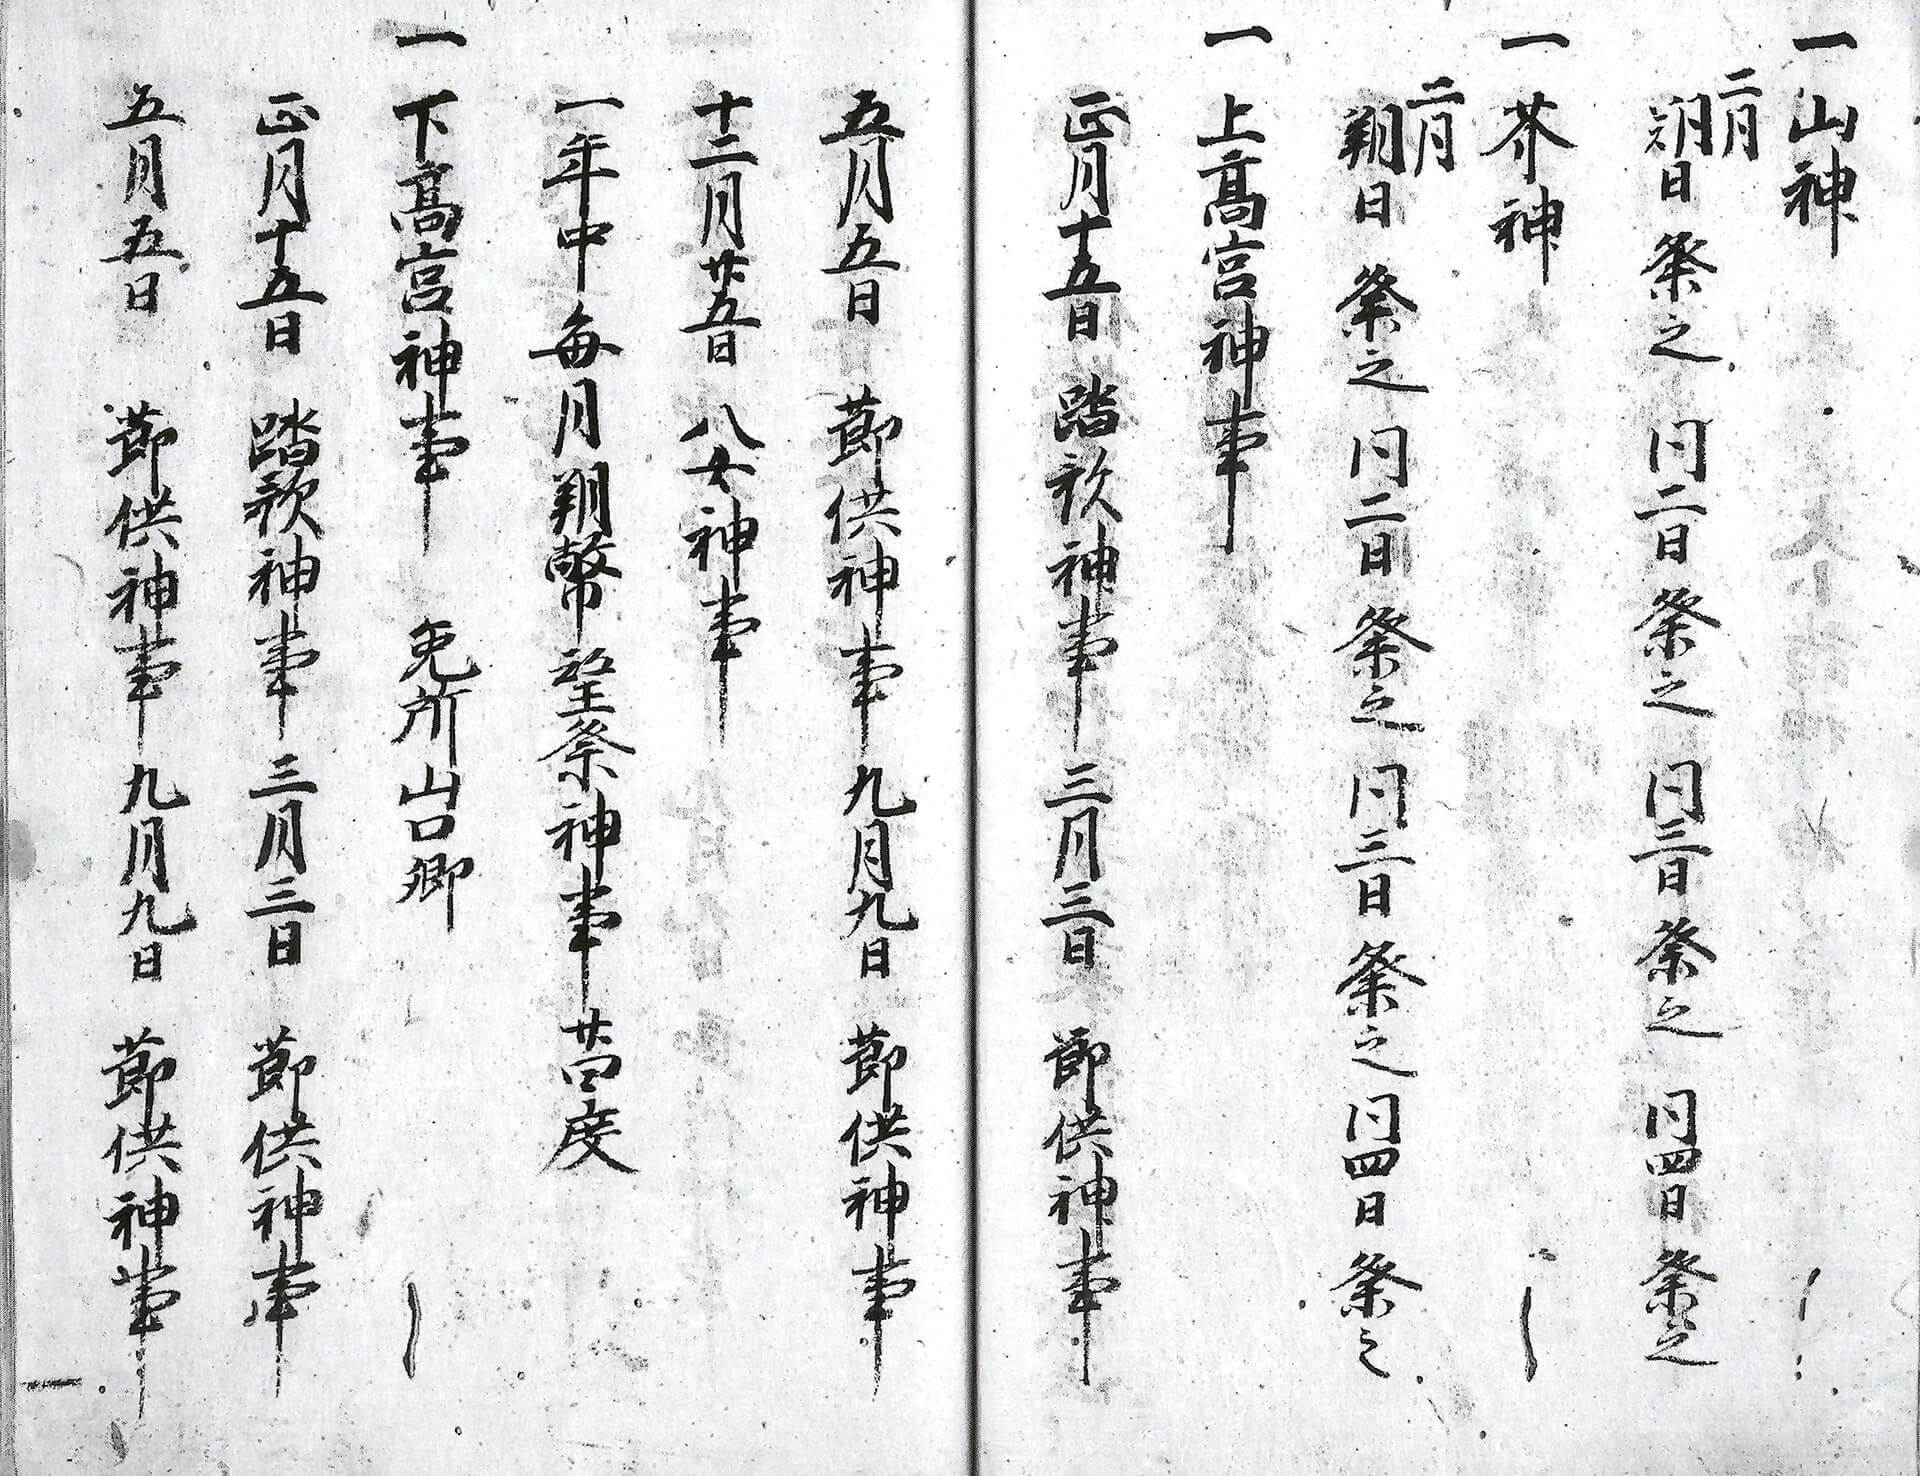 一山神
二月朔日祭之 同二日祭之 同三日祭之 同四日祭之
一芥神
二月朔日祭之 同二日祭之 同三日祭之 同四日祭之
一上高宮神事
正月十五日 踏歌神事 三月三日 節供神事
五月五日 節供神事 九月九日 節供神事
十二月廿五日 八女神事
一年中毎月朔幣望祭神事廿四度
一下高宮神事 免所山口郷
正月十五日 踏歌神事 三月三日 節供神事
五月五日 節供神事 九月九日 節供神事